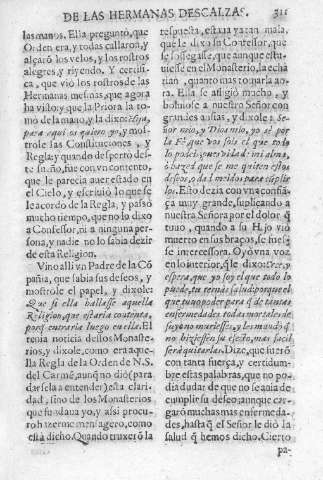 DE LAS HERMANAS DESCALZAS. 311
las manos. Ella preguntò, que
Orden era, y todas callaron, y
alçarò los velos, y los rostros
alegres, y riyendo. Y certifi-
ca, que viò los rostros de las
Hermanas mesmas, que agora
ha visto: y que la Priora la to-
mò de la mano, y la dixo: Hija,
para aqui os quiero yo; y mos-
trole las Constituciones, y
Regla: y quando desperto des-
te sueño, fue con vn contento,
que le parecia auer estado en
el Cielo, y escriuiò lo que se
le acordò de la Regla, y passò
mucho tiempo, que no lo dixo
a Confessor, ni a ninguna per-
sona, y nadie no lo sabia dezir
de esta Religion.
Vino alli vn Padre de la Cõ
pañia, que sabia sus deseos, y
mostrole el papel, y dixole:
Que si ella hallasse aquella
Religion, que estaria contenta,
porq̃ entraria luego en ella. El
tenia noticia destos Monaste-
rios, y dixole, como era aque-
lla Regla de la Orden de N. S.
del Carmẽ, aunq̃ no diò (pa-
darsela a entender) esta clari-
dad, sino de los Monasterios
que fundaua yo; y assi procu-
rò hazerme mensagero, como
està dicho. Quando truxerò la
respuesta, estaua ya tan mala,
que le dixo su Confessor, que
se sossegasse, que aunque estu-
uiesse en el Monasterio, la echa
rian, quanto mas tomarla ao-
ra. Ella se afligiò mucho, y
boluiose a nuestro Señor con
grandes ansias, y dixole: Se-
ñor mio, y Dios mio, yo sè por
la Fè, que vos sois el que todo
lo podeis; pues vida de mi alma,
ò hazed que se me quiten estos
deseos, ò dad medios para cum-
plirlos. Esto dezia con vna confia
ça muy grande, suplicando a
nuestra Señora por el dolor q̃
tuuo, quando a su Hijo viò
muerto en sus braços, se le fues-
se intercessora. Oyò vna voz
en lo interior, q̃ le dixo: Cree, y
espera, que yo soy el que todo lo
puede, tu ternàs salud: porque el
que tuuo poder para q̃ de tantas
enfermedades todas mortales de
suyo no muriesses, y les mandò q̃
no hiziessen su efecto, mas facil
serà quitarlas. Dize, que fuerò
con tanta fuerça, y certidum-
bre estas palabras, que no po-
dia dudar de que no se auia de
cumplir su deseo; aunque car-
garò muchas mas enfermeda-
des, hasta q̃ el Señor le diò la
salud q̃ hemos dicho. Cierto
pa-